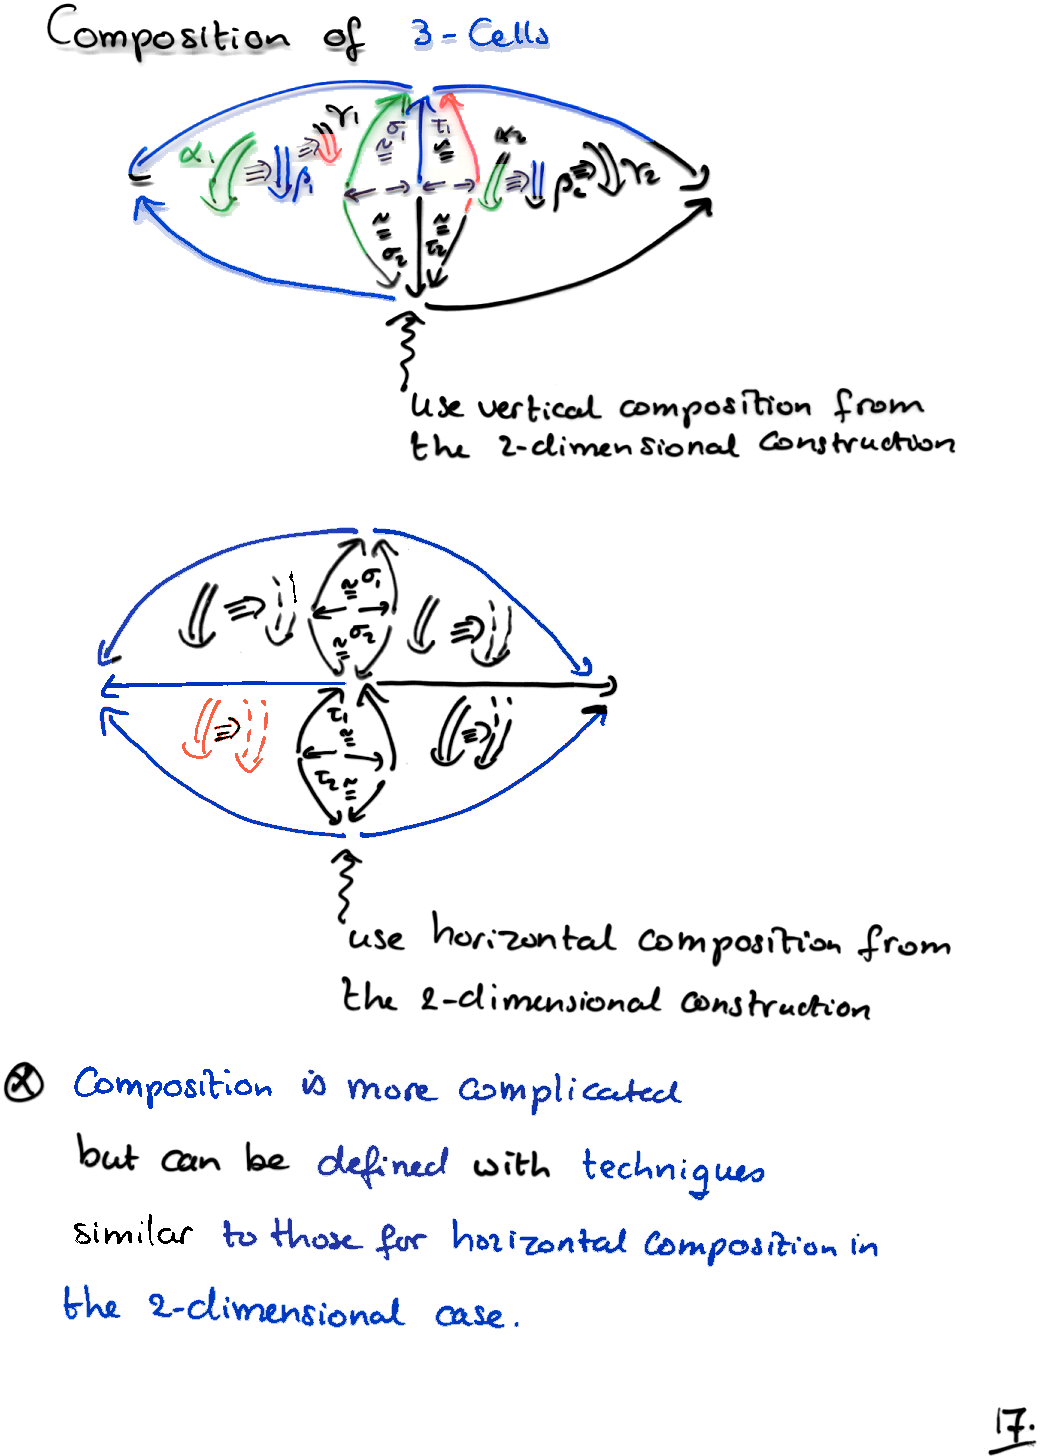 Composition of 3-Cells
α₁ ⇛ β₁ ⇛ γ₁ ≅ σ₁ τ₁ ≅ α₂ ⇛ β₂ ⇛ γ₂
≅ σ₂ ≅ τ₂
use vertical composition from
the 2-dimensional construction
≅ σ₁
≅ σ₂
τ₁ ≅
τ₂ ≅
use horizontal composition from
the 2-dimensional construction
⊗ Composition is more complicated
but can be defined with techniques
similar to those for horizontal composition in
the 2-dimensional case.
17.